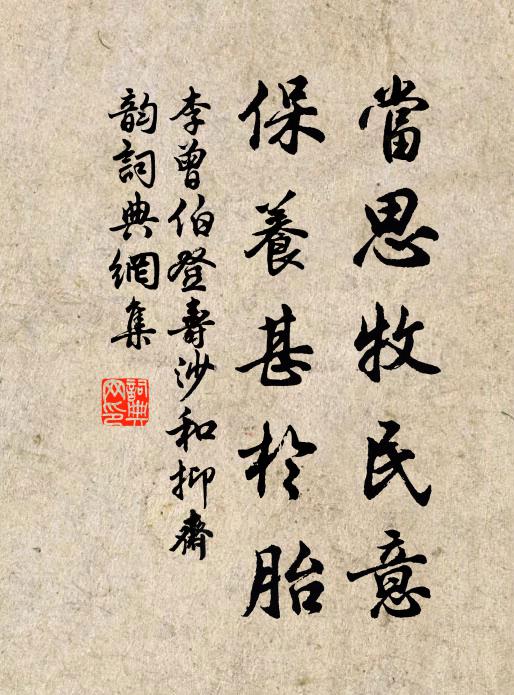 當思牧民意
保養甚於胎
李曾伯登壽沙和抑齋
韵詞典網集
詞典網印